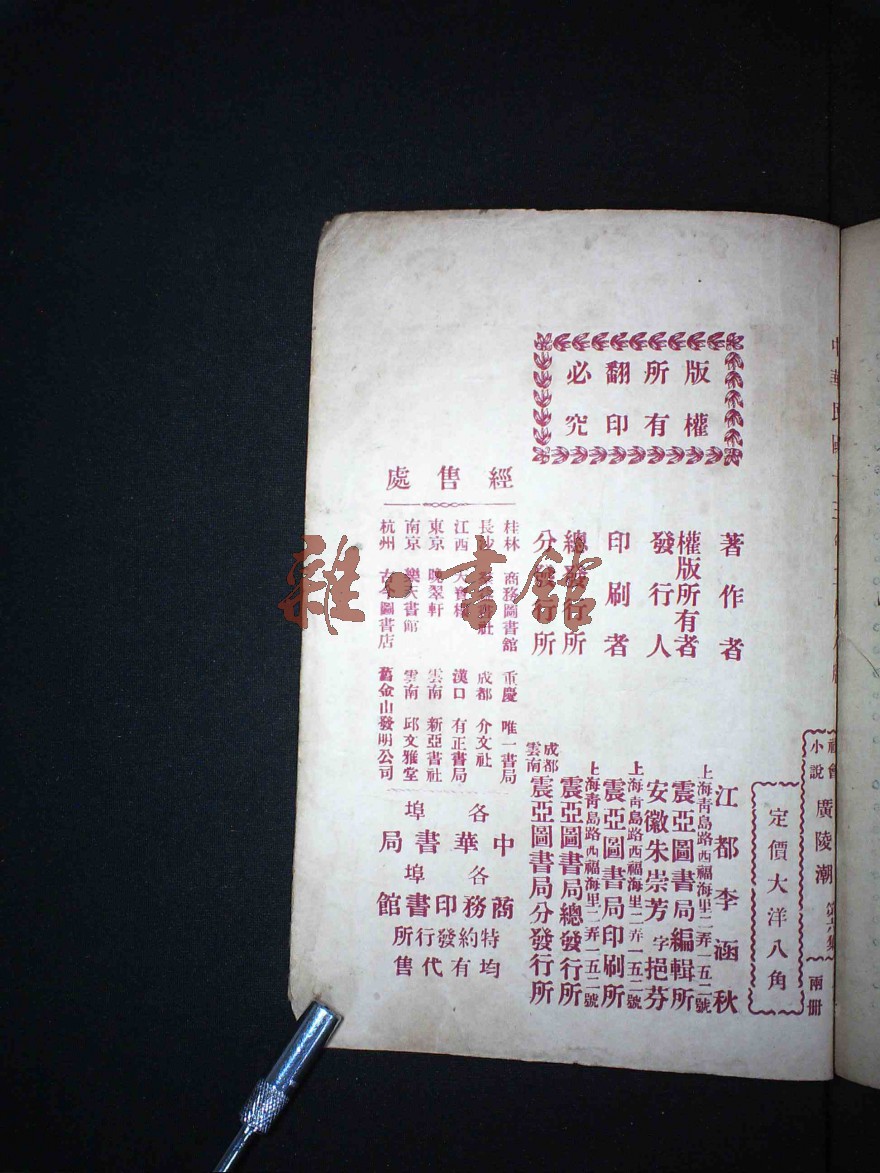 中華民國
社會小說 廣陵潮 第六集 兩冊
定價大洋八角
版權所有
翻印必究
著作者 江都李涵秋
權版所有者 上海青島路西福海里二弄一五二號 震亞圖書局編輯所
發行人 安徽朱崇芳字挹芬
印刷者 上海青島路西福海里二弄一五二號 震亞圖書局印刷所
總發行所 上海青島路西福海里二弄一五二號 震亞圖書局總發行所
分發行所 成都 雲南 震亞圖書局分發行所
經售處
桂林 商務圖書館 重慶 唯一書局
長沙 成都 介文社
江西 漢口 有正書局
東京 晚翠軒 雲南 新亞書社
南京 樂天書館 雲南 邱文雅堂
杭州 古今圖書店 舊金山發明公司
各埠
中華書局
各埠
商務印書館
特約發行所
均有代售
雜·書館